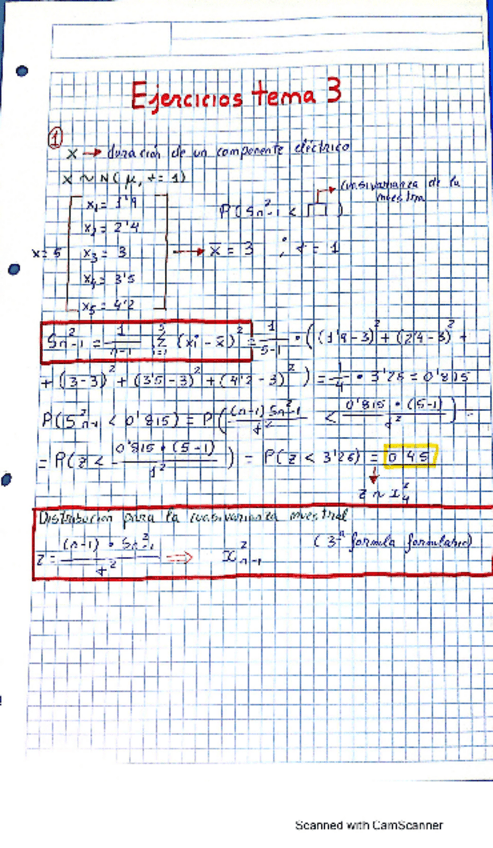 Ejercicios tema 3
1
X → duración de un componente eléctrico
X ~ N(μ, σ=1)
x₁ = 1'9
x₂ = 2'4
x₃ = 3
x₄ = 3'5
x₅ = 4'2
P(S²n-1 < )
→ cuasivarianza de la muestra
→ x̄ = 3 ; σ = 1
S²n-1 = 1/n-1 Σ (xi - x̄)² = 1/5-1 · ((1'9-3)² + (2'4-3)² +
+ (3-3)² + (3'5-3)² + (4'2-3)²) = 1/4 · 3'26 = 0'815
P(S²n-1 < 0'815) = P((n-1)S²n-1/σ² < 0'815·(5-1)/σ²) =
= P(Z < 0'815·(5-1)/1²) = P(Z < 3'26) = 0'45
Z ~ X²₄
Distribución para la cuasivarianza muestral
Z = (n-1)·S²n-1/σ² ⇒ X²n-1 (3ª formula formulario)
Scanned with CamScanner